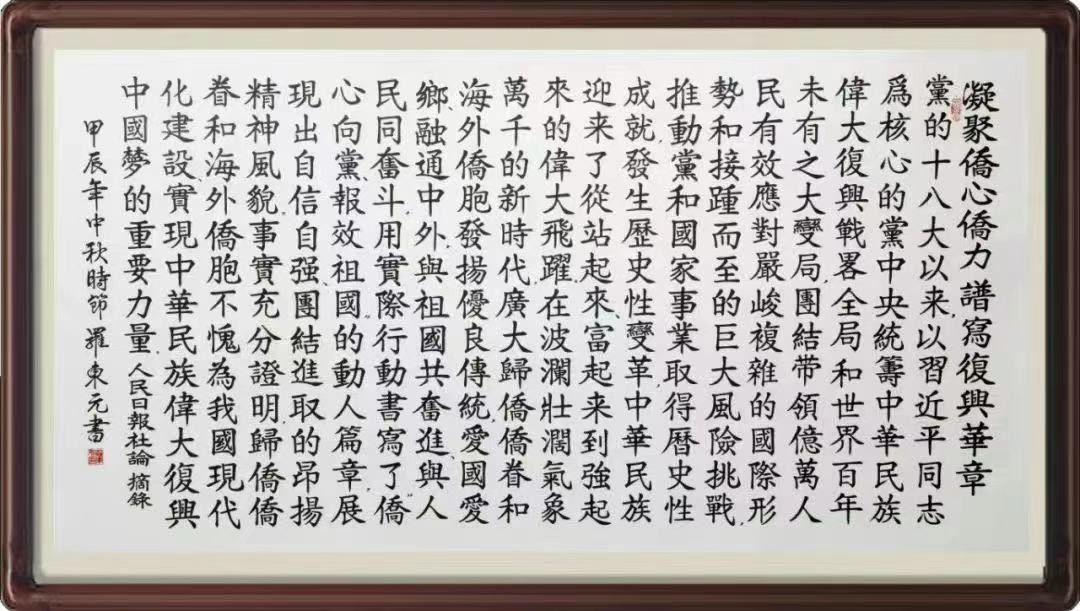 凝聚僑心僑力譜寫復興華章
黨的十八大以来,以習近平同志
爲核心的黨中央統籌中華民族
偉大復興戰畧全局和世界百年
未有之大變局,團結带領億萬人
民有效應對嚴峻複雜的國際形
勢和接踵而至的巨大風險挑戰,
推動黨和國家事業取得曆史性
成就,發生歷史性變革中華民族
迎来了從站起來,富起来到強起
來的偉大飛躍,在波瀾壯濶氣象
萬千的新時代,廣大歸僑僑眷和
海外僑胞發揚優良傳統,愛國愛
鄉,融通中外,與祖國共奮進,與人
民同奮斗,用實際行動書寫了“僑
心向黨,報效祖國”的動人篇章,展
現出自信自强,團結進取的昂揚
精神風貌,事實充分證明,歸僑僑
眷和海外僑胞不愧為我國現代
化建設,實現中華民族偉大復興
中國夢的重要力量,人民日報社論 摘錄
甲辰年中秋時節羅東元書